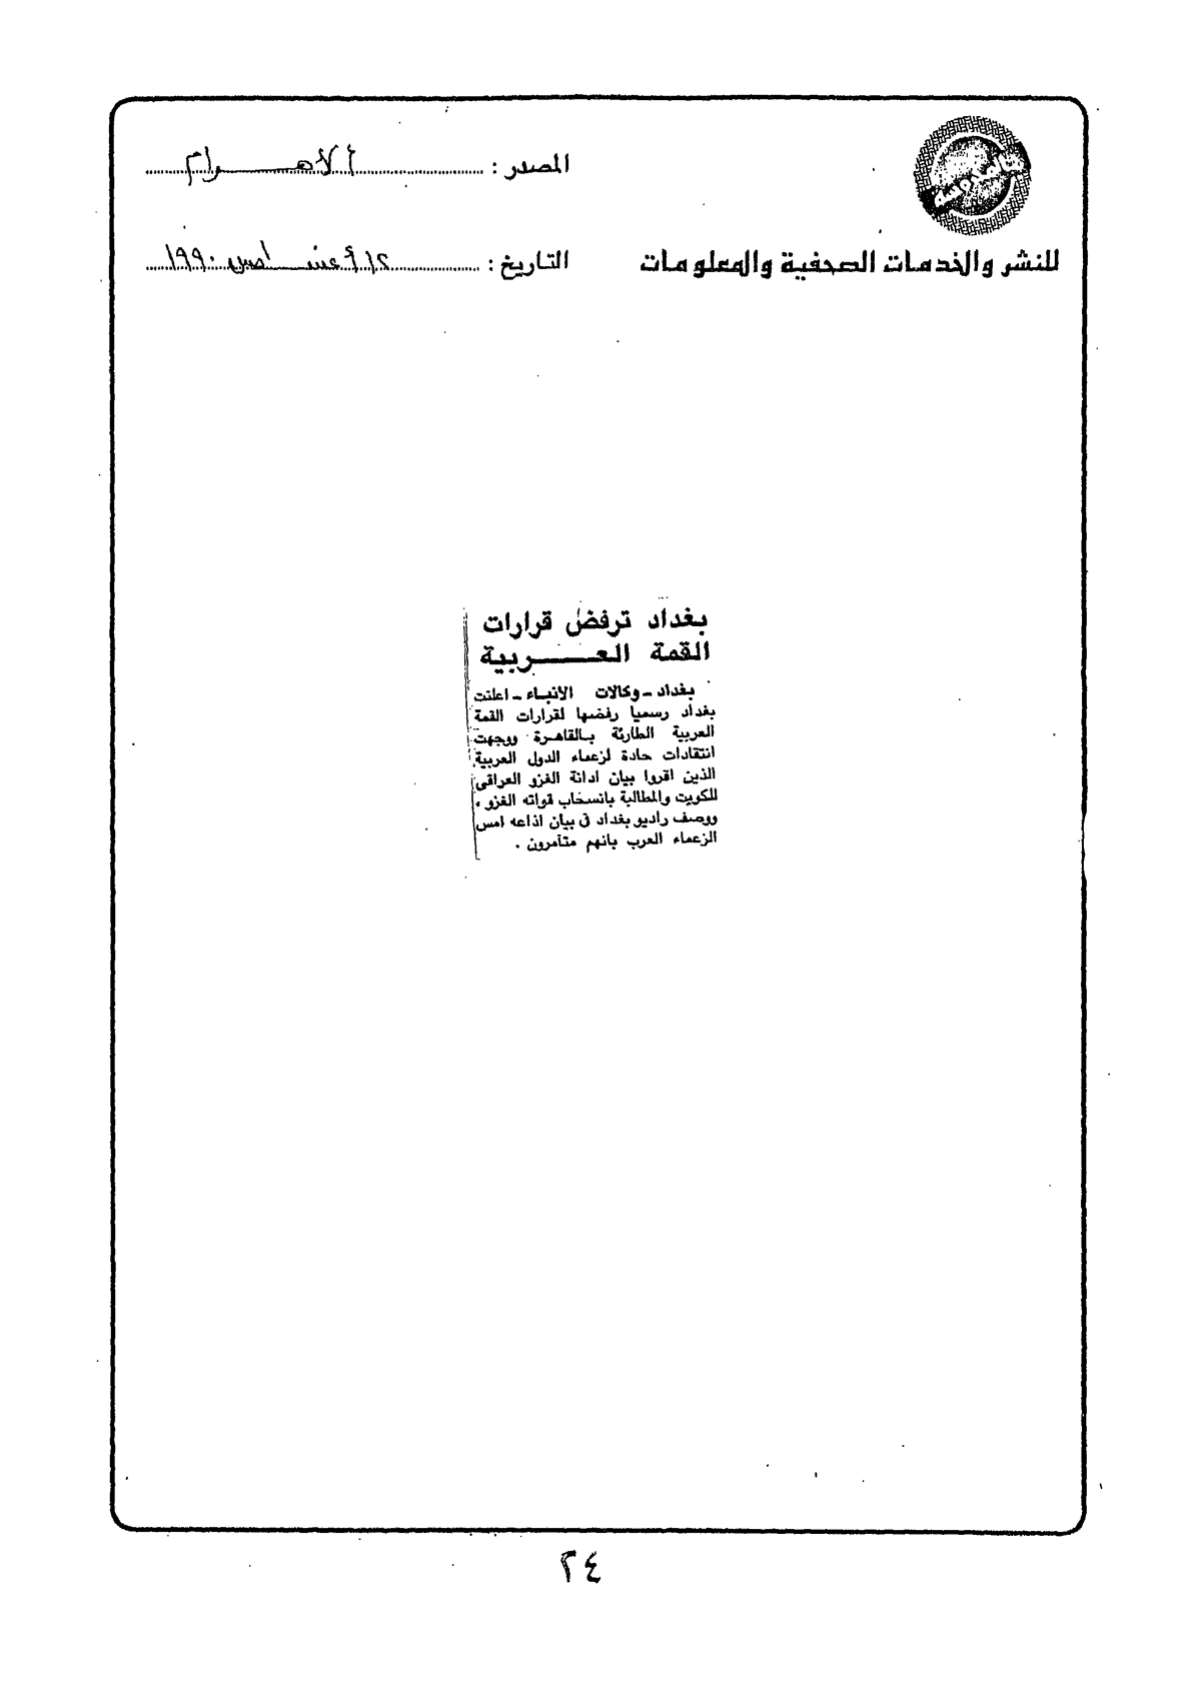 المصدر : الأهرام
للنشر والخدمات الصحفية والمعلومات
التاريخ : ١٢ أغسطس ١٩٩٠
بغداد ترفض قرارات
القمة العـــربية
بغداد ـ وكالات الانباء ـ اعلنت
بغداد رسميا رفضها لقرارات القمة
العربية الطارئة بالقاهرة ووجهت
انتقادات حادة لزعماء الدول العربية
الذين اقروا بيان ادانة الغزو العراقى
للكويت والمطالبة بانسحاب قواته الغزو ،
ووصف راديو بغداد فى بيان اذاعه امس
الزعماء العرب بانهم متآمرون .
٢٤